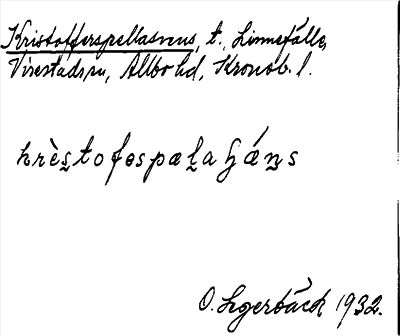 Kristofferspellasmus, t., Linnefälle,
Virestads sn, Allbo hd, Kronob. l.
krèstofospælaɧáns
O. Lgerbäck 1932.